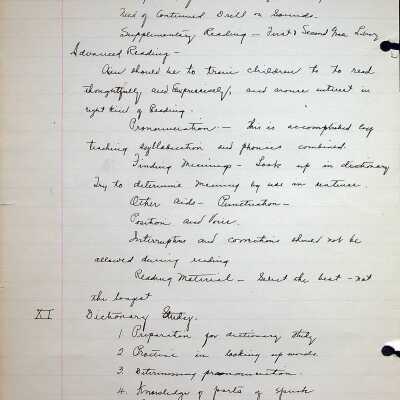 Need of Continued Drill on Sounds.
Supplementary Reading – First & Second Year Library
Advanced Reading –
Aim should be to train children to to read
thoughtfully and Expressively, and arouse interest in
right kind of Reading.
Pronunciation – This is accomplished by
teaching syllabication and phonics combined.
Finding Meanings – Look up in dictionary
Try to determine meaning by use in sentence.
Other aids – Punctuation –
Position and Voice.
Interruptions and corrections should not be
allowed during reading
Reading Material – Select the best – not
the longest
XI Dictionary Study.
1. Preparation for dictionary study
2 Practice in looking up words
3. Determining pronunciation.
4. Knowledge of parts of speech